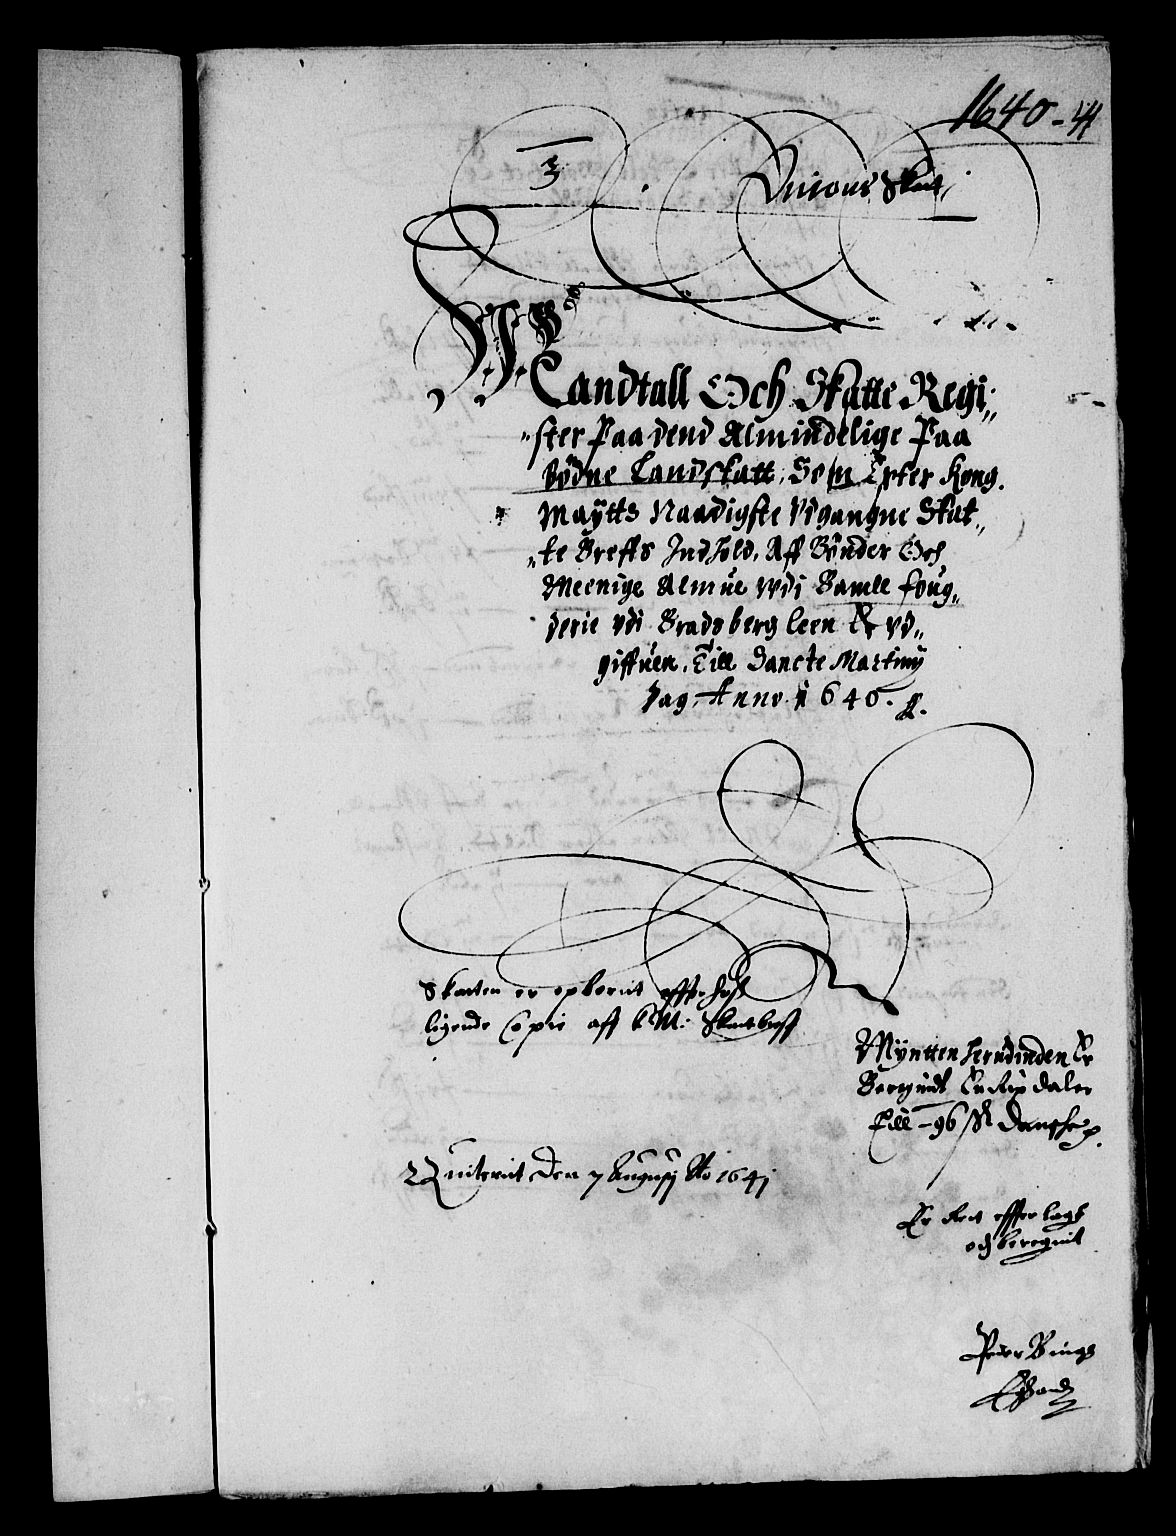 1640-41
3
Unions Skat
Landtall Och Skatte Regi-
ster Paa dend Almindelige Paa
Bödne Landskatt, Som Epter Kong.
Maÿtts Naadigste Vdgangne Skat-
te Breffs Indhold, Aff Bönder Och
Meenige Almue Vdi Bamle foug-
derie vdi Bradsberg leen Er vd-
giffuen, Till Sancte Martinij
dag. Anno 1640.
Skatten er opbornit effter hos
ligende Copie aff K M: Skatbreff
Mÿntten herudinden Er
Beregnidt En Rix daler
Till 96 ß Danske.
Quiterit den 7 Augusj Ao 1641
Er Ret effter lagt
och beregnit
Peder Bings